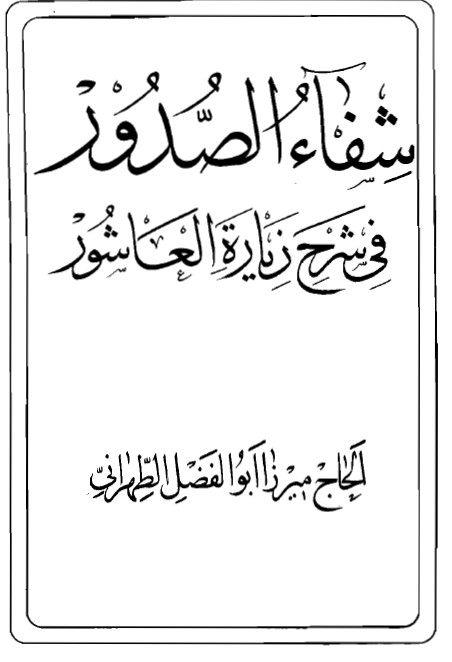 شِفَآءُ الصُّدُورْ
فِي شَرْحِ زِيَارَةِ الْعَاشُورْ
اَلْحَاجْ مِيرْزَا اَبُو الْفَضْلِ الطِّهْرَانِيّ